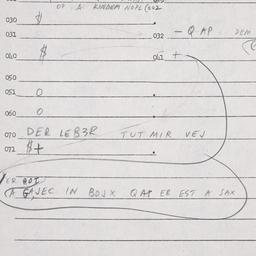 OF A KINDOM NOPE (202
030 $
031
032 - Q AP. DEM
040 $
041 +
050
051 0
060 0
070 DER LEB3R TUT MIR VEJ
071 $+
A GAJEC IN BOJX QAP ER EST A SAX